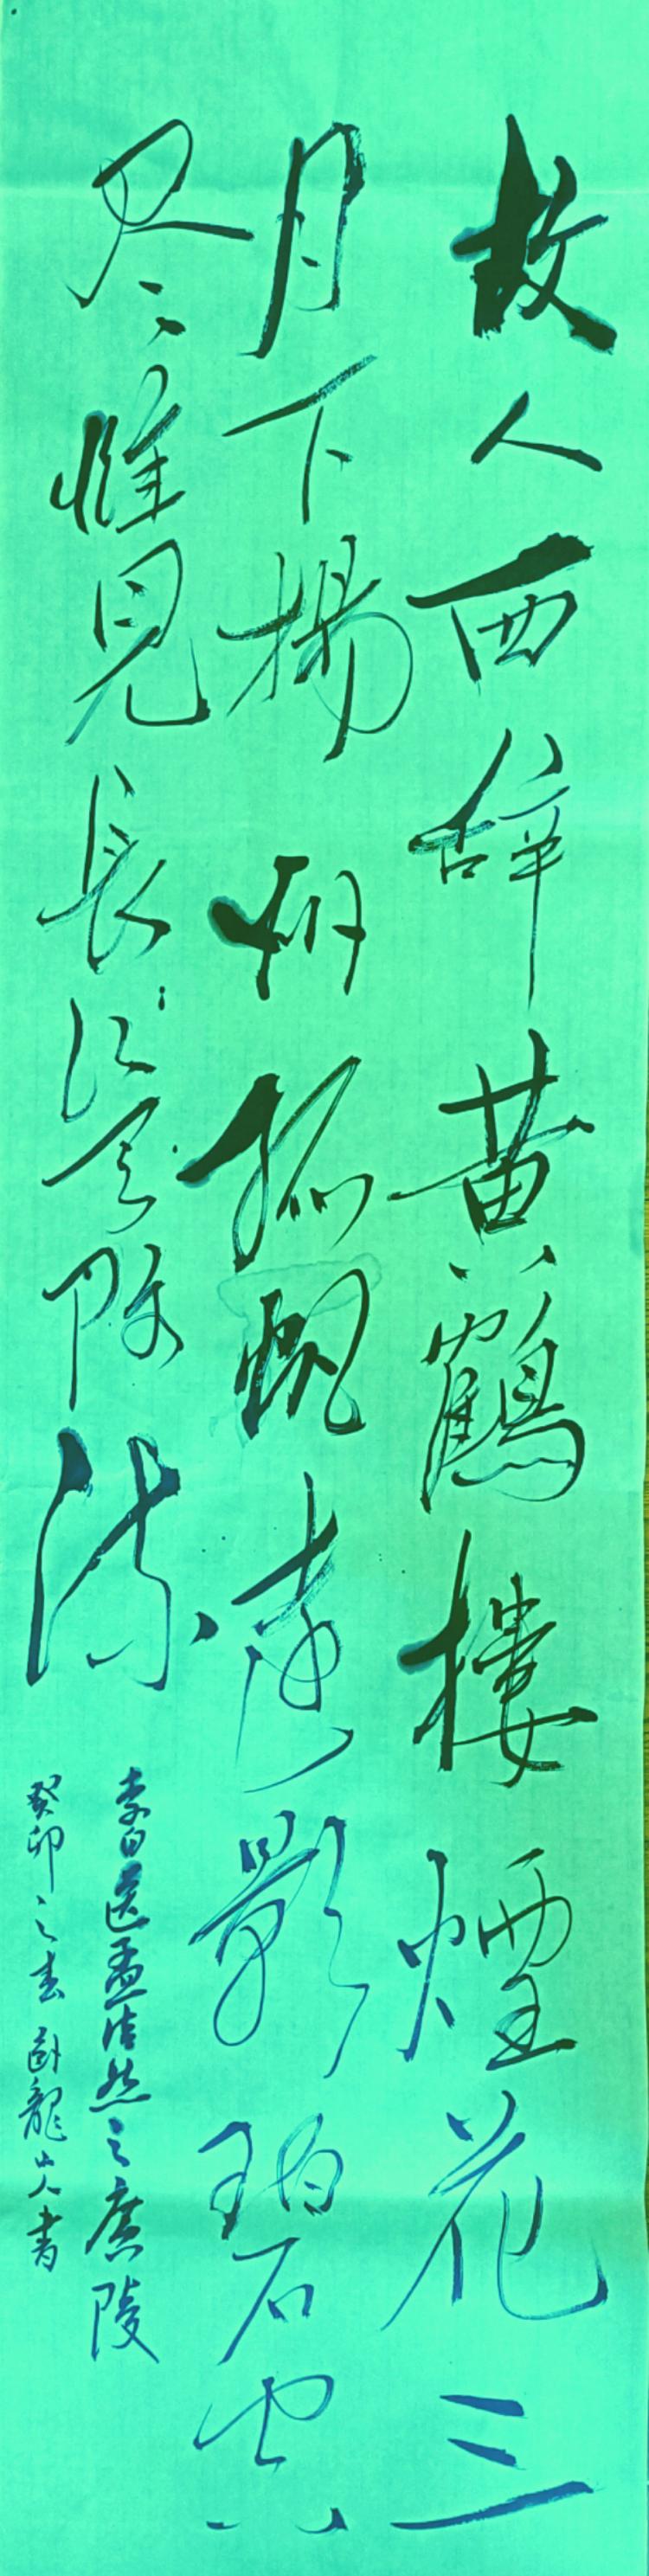 故人西辞黄鶴樓煙花三
月下揚州孤帆遠影碧空
尽惟見長江天際流
李白送孟浩然之廣陵
癸卯之春 卧龍山人書